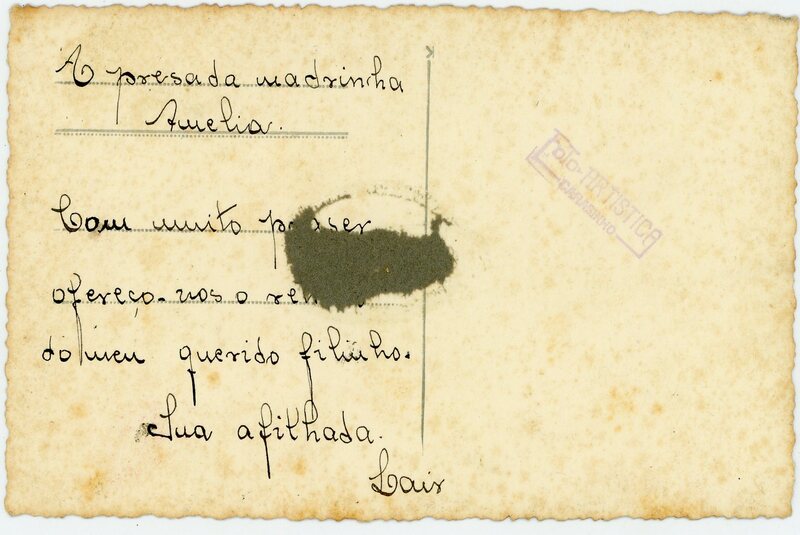 A presada madrinha
Amelia.
Com muito
ofereço-vos o
do meu querido filinho.
Sua afilhada.
Lair
Foto-ARTISTICA
CARASINHO